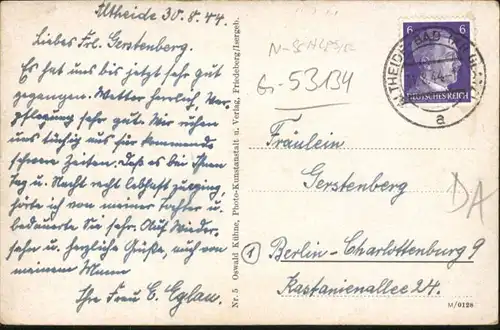 Altheide 30.8.44.
Liebes Frl. Gerstenberg.
Es hat uns bis jetzt sehr gut
gegangen. Wetter herrlich, Ver-
pflegung sehr gut Wir ruhen
uns tüchtig aus für kommende
schwere Zeiten. Daß es bei Ihnen
Tag u. Nacht recht lebhaft zuging,
hörte ich von meiner Tochter u.
bedauerte Sie sehr. Auf Wieder
sehn u. herzliche Grüße, auch von
meinem Mann
Ihre Frau C. Eglau.
Nr. 5 Oswald Kühne, Photo-Kunstanstalt u. Verlag, Friedeberg/Isergeb.
N-SCHLES/E
G-53134
6 6
DEUTSCHES REICH
ALTHEIDE BAD
8.44
a
Fräulein
Gerstenberg
DA
1
Berlin-Charlottenburg 9
Kastanienallee 24.
M/0128